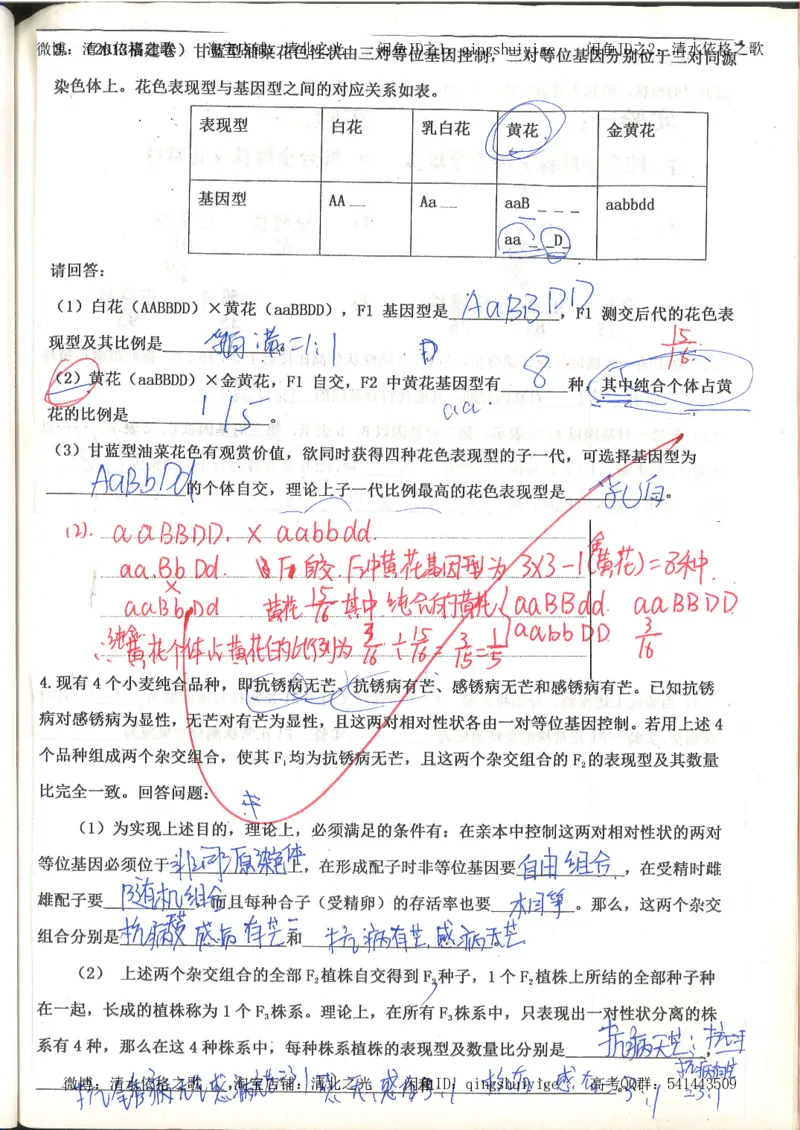 微博：清水依格之歌 淘宝店铺：清业之光 闲鱼ID之1：qingshuiyige 闲鱼ID之2：清水依格之歌
（2013福建卷）甘蓝型油菜花色性状由三对等位基因控制，三对等位基因分别位于三对同源
染色体上。花色表现型与基因型之间的对应关系如表。
表现型 白花 乳白花 黄花 金黄花
基因型 AA__ Aa__ aaB _ _ _ aabbdd
aa _ _D_
请回答：
（1）白花（AABBDD）×黄花（aaBBDD），F1 基因型是 AaBBDD ，F1 测交后代的花色表
现型及其比例是 黄=1:1
D
15/16
（2）黄花（aaBBDD）×金黄花，F1 自交，F2 中黄花基因型有 8 种，其中纯合个体占黄
aa
花的比例是 1/5 。
（3）甘蓝型油菜花色有观赏价值，欲同时获得四种花色表现型的子一代，可选择基因型为
AaBbDd 的个体自交，理论上子一代比例最高的花色表现型是 乳白 。
(2). aaBBDD. × aabbdd.
aa.BbDd. F1自交. F2中黄花基因型为 3×3-1(金黄花)=8种.
×
aaBbDd 黄花 15/16 其中纯合的黄花 { aaBBdd. aaBBDD
aabbDD 3/16
∴纯合黄花个体占黄花的比例为 3/16 ÷ 15/16 = 3/15 = 1/5
4.现有 4 个小麦纯合品种，即抗锈病无芒、抗锈病有芒、感锈病无芒和感锈病有芒。已知抗锈
病对感锈病为显性，无芒对有芒为显性，且这两对相对性状各由一对等位基因控制。若用上述 4
个品种组成两个杂交组合，使其 F₁均为抗锈病无芒，且这两个杂交组合的 F₂的表现型及其数量
比完全一致。回答问题：
（1）为实现上述目的，理论上，必须满足的条件有：在亲本中控制这两对相对性状的两对
等位基因必须位于 非同源染色体 上，在形成配子时非等位基因要 自由组合 ，在受精时雌
雄配子要 随机组合 而且每种合子（受精卵）的存活率也要 相等 。那么，这两个杂交
组合分别是 抗病 感病有芒 和 抗病有芒.感病无芒
（2） 上述两个杂交组合的全部 F₂植株自交得到 F₃种子，1 个 F₂植株上所结的全部种子种
在一起，长成的植株称为 1 个 F₃株系。理论上，在所有 F₃株系中，只表现出一对性状分离的株
系有 4 种，那么在这 4 种株系中，每种株系植株的表现型及数量比分别是 抗病无芒: ，
和 。
微博：清水依格之歌 淘宝店铺：清业之光 闲鱼ID：qingshuiyige 高考QQ群：541443509